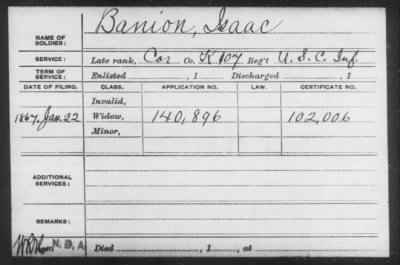 Banion, Isaac
NAME OF SOLDIER:
SERVICE: Late rank, Cor Co. K 107 Reg't U. S. C. Inf.
TERM OF SERVICE: Enlisted , 1 Discharged , 1
DATE OF FILING. CLASS. APPLICATION NO. LAW. CERTIFICATE NO.
Invalid,
1867, Jan. 22 Widow, 140,896 102,006
Minor,
ADDITIONAL SERVICES:
REMARKS:
N. B, A Died , 1 , at